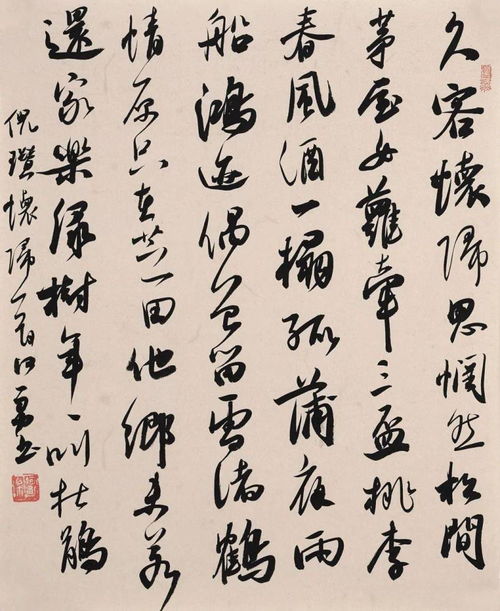 久客懷歸思惘然松間
茅屋女蘿牽三盃桃李
春風酒一榻孤蒲夜雨
船鴻迹偶曾留雪渚鶴
情原只在芝田他鄉未若
還家樂綠樹年々叫杜鵑
倪瓚懷歸一首 勇書